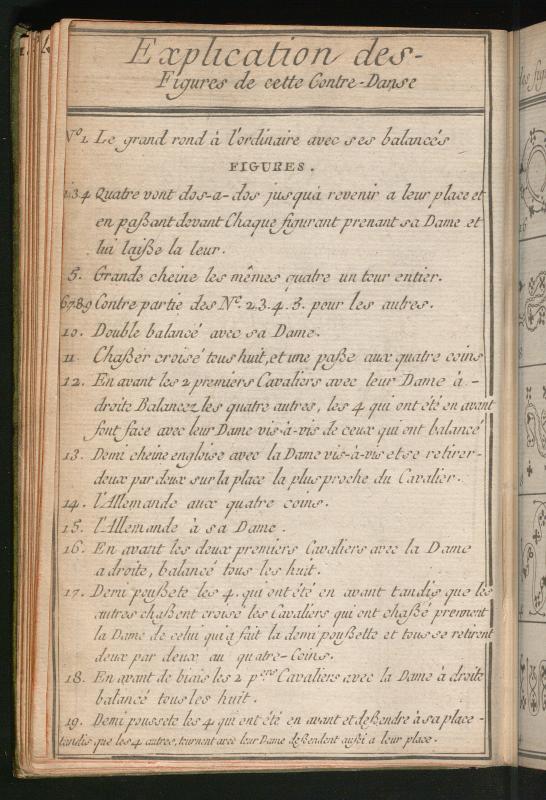 Explication des-
Figures de cette Contre-Danse
Nº1. Le grand rond à l'ordinaire avec ses balancés
FIGURES.
2,3,4 Quatre vont dos-a-dos jusqu'à revenir a leur place et
en paßant devant Chaque figurant prenant sa Dame et
lui laiße la leur.
5. Grande cheine les mêmes quatre un tour entier.
6.7.8.9 Contre partie des Nº. 2.3.4.5. pour les autres.
10. Double balancé avec sa Dame.
11 Chaßer croisé tous huit, et une paße aux quatre coins
12. En avant les 2 premiers Cavaliers avec leur Dame à -
droite Balancez les quatre autres, les 4 qui ont été en avant
font face avec leur Dame vis-à-vis de ceux qui ont balancé
13. Demi cheine engloise avec la Dame vis-à-vis et se retirer-
deux par deux sur la place la plus proche du Cavalier.
14. l'Allemande aux quatre coins.
15. l'Allemande à sa Dame.
16. En avant les deux premiers Cavaliers avec la Dame
a droite, balancé tous les huit.
17. Demi poußete les 4. qui ont été en avant tandis que les
autres chaßent croisé les Cavaliers qui ont chaßé prennent
la Dame de celui qui à fait la demi poußette et tous se retirent
deux par deux au quatre-Coins.
18. En avant de biais les 2 p.ers Cavaliers avec la Dame à droite
balancé tous les huit.
19. Demi poussete les 4 qui ont été en avant et deßendre à sa place -
tandis que les 4 autres, tournent avec leur Dame deßendent außi a leur place.